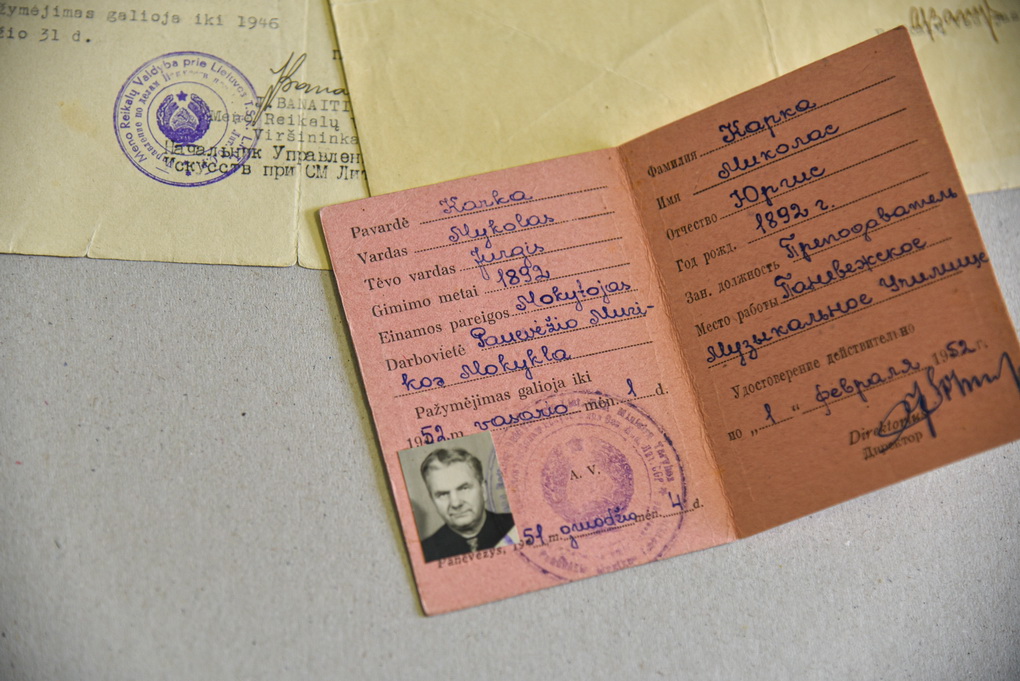 žymėjimas galioja iki 1946
žio 31 d.
Meno Reikalų Valdyba prie Lietuvos T.S.R.
Управление по делам
BANAITI
Meno Reikalų
Viršininka
Начальник Управлен
Искусств при СМ Лит
Pavardė Karka
Vardas Mykolas
Tėvo vardas Jurgis
Gimimo metai 1892
Einamos pareigos Mokytojas
Darbovietė Panevėžio Muzi-
kos Mokykla
Pažymėjimas galioja iki
1952 m. vasario mėn. 1 d.
A. V.
Panevėžys, 1951 m. gruodžio mėn. 4 d.
Фамилия Карка
Имя Миколас
Отчество Юргис
Год рожд. 1892 г.
Зан. должность Преподаватель
Место работы Паневежское
Музыкальное Училище
Удостоверение действительно
по „1“ февраля 1952 г.
Direktorius
Директор